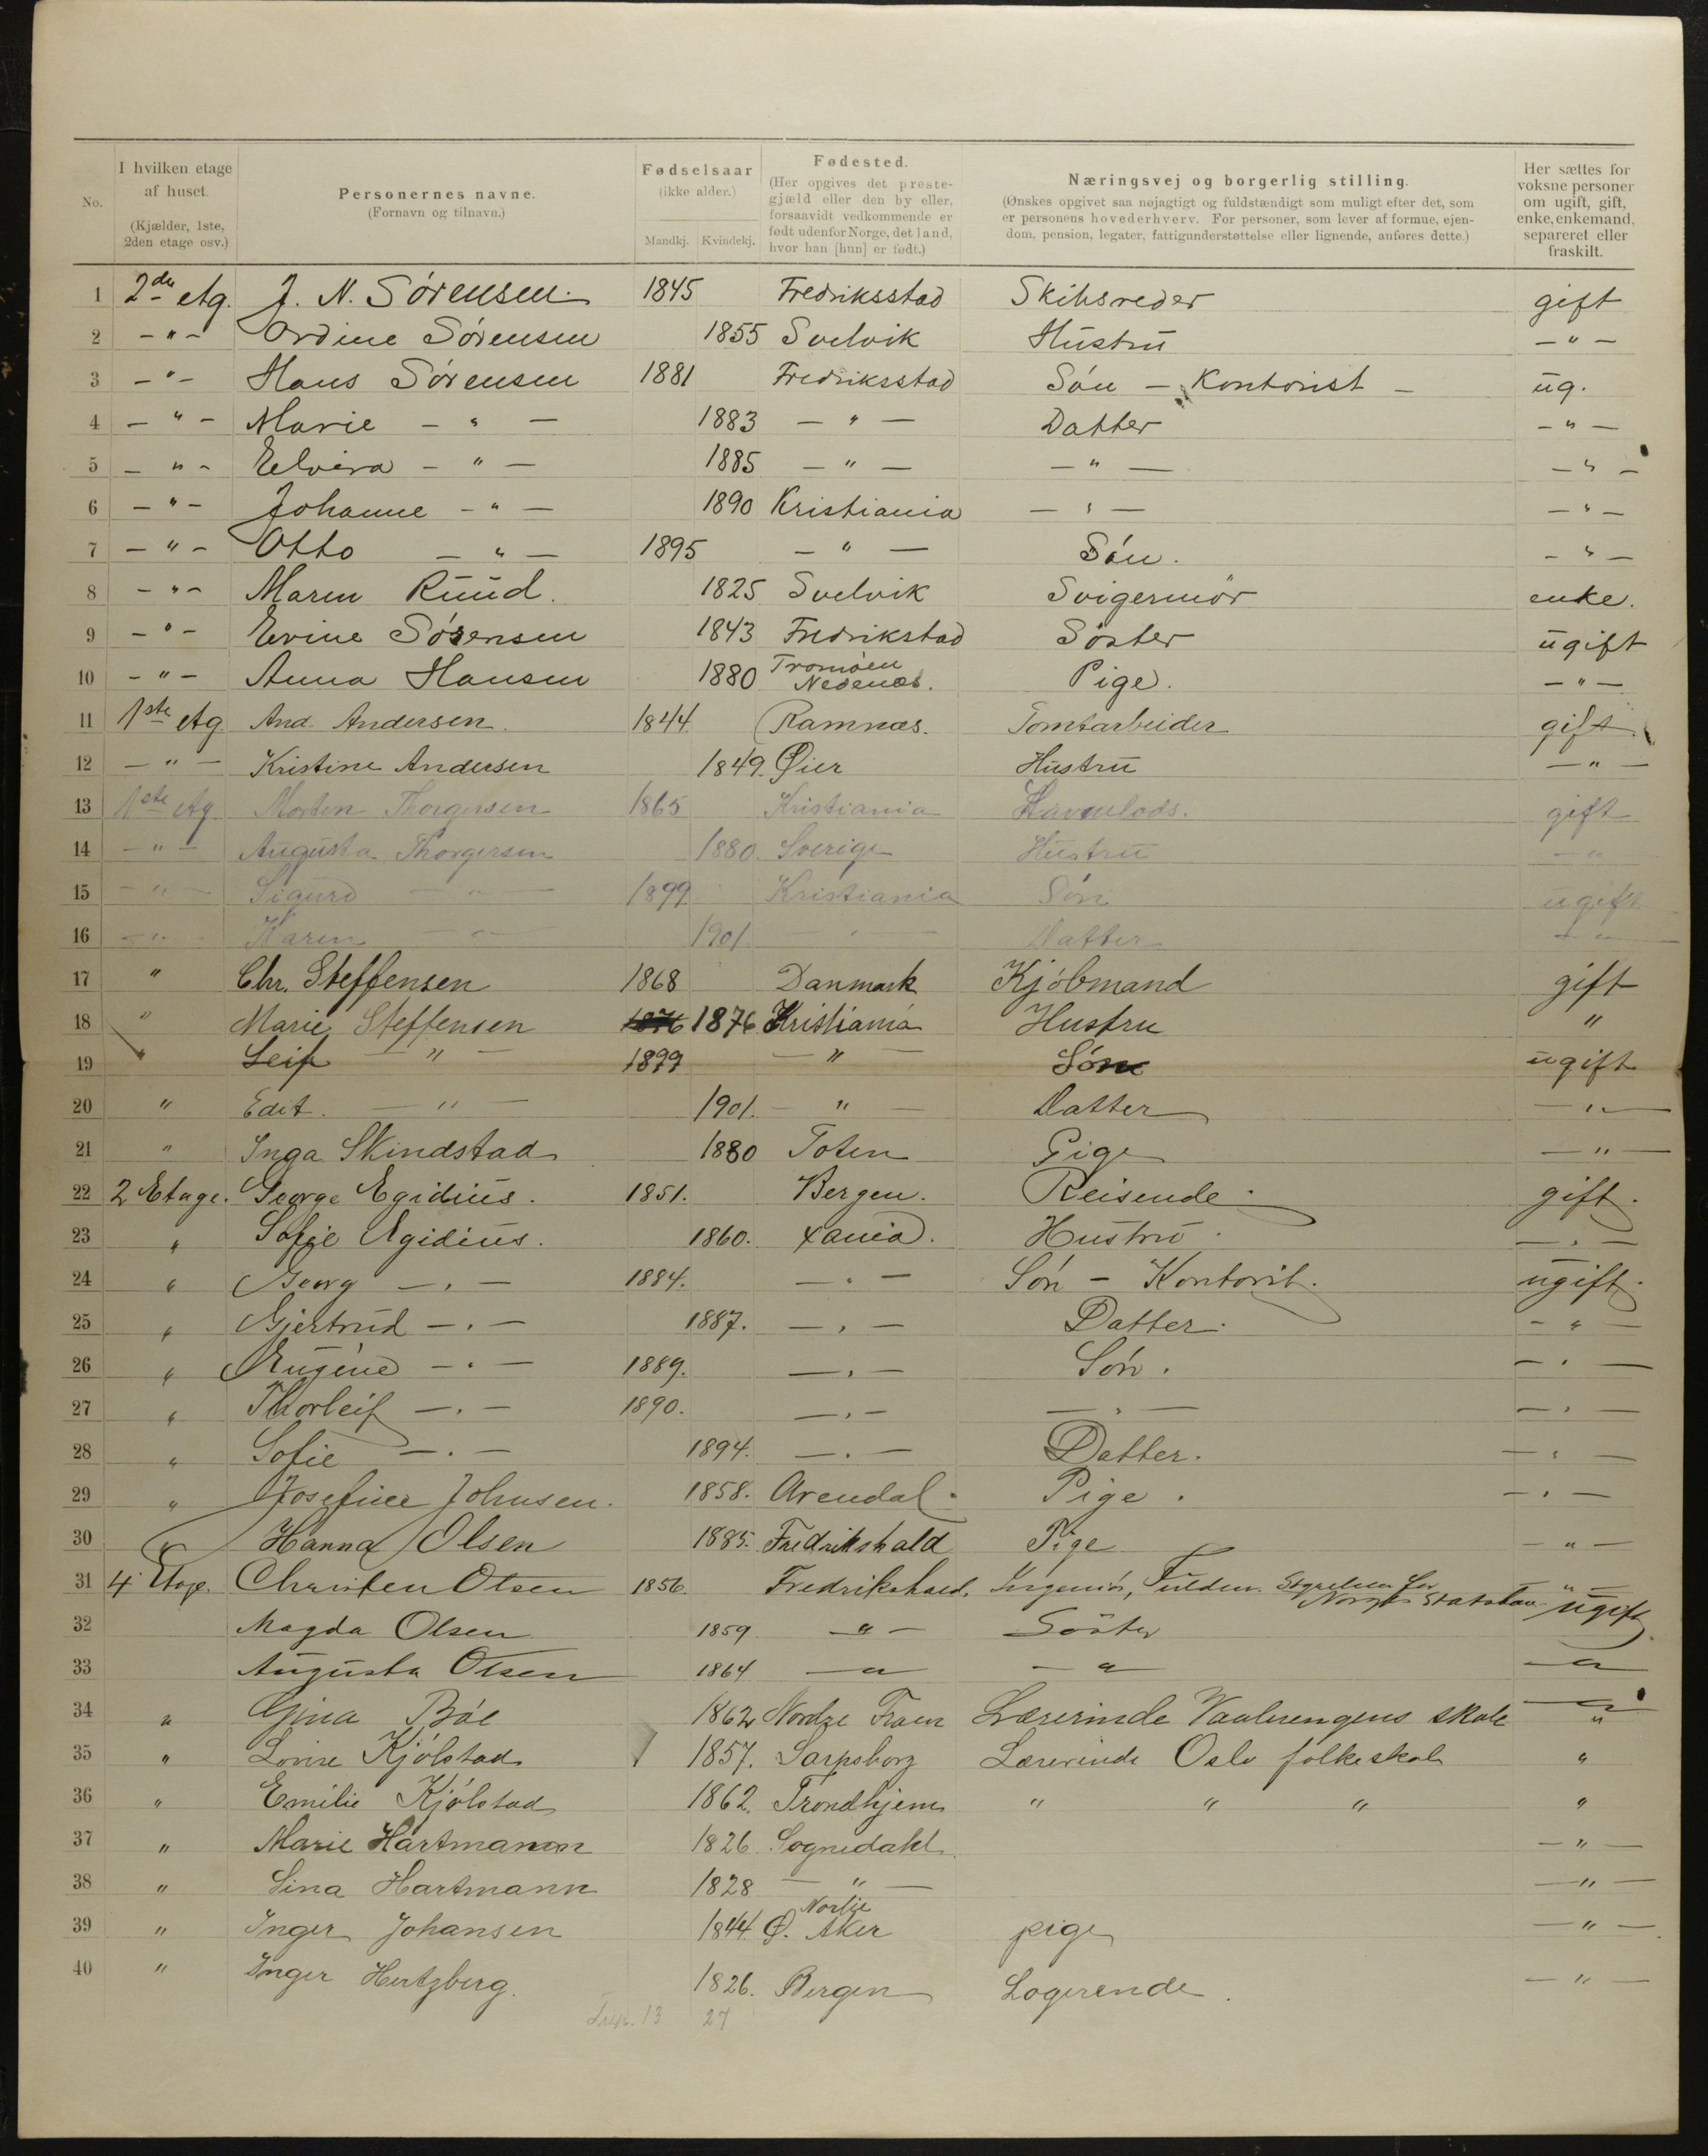 No.
I hvilken etage af huset. (Kjælder, 1ste, 2den etage osv.)
Personernes navne. (Fornavn og tilnavn.)
Fødselsaar (ikke alder.) Mandkj. Kvindekj.
Fødested. (Her opgives det prestegjæld eller den by eller, forsaavidt vedkommende er født udenfor Norge, det land, hvor han [hun] er født.)
Næringsvej og borgerlig stilling. (Ønskes opgivet saa nøjagtigt og fuldstændigt som muligt efter det, som er personens hovederhverv. For personer, som lever af formue, ejendom, pension, legater, fattigunderstøttelse eller lignende, anføres dette.)
Her sættes for voksne personer om ugift, gift, enke, enkemand, separeret eller fraskilt.
1 2den Etg. J. N. Sørensen. 1845 Fredriksstad Skibsreder gift
2 - " - Ordine Sørensen 1855 Svelvik Hustru - " -
3 - " - Hans Sørensen 1881 Fredriksstad Søn - Kontorist - ug.
4 - " - Marie - " - 1883 - " - Datter - " -
5 - " - Elvira - " - 1885 - " - - " - - " -
6 - " - Johanne - " - 1890 Kristiania - " - - " -
7 - " - Otto - " - 1895 - " - Søn. - " -
8 - " - Maren Ruud. 1825 Svelvik Svigermor enke.
9 - " - Evine Sørensen 1843 Fredrikstad Søster ugift
10 - " - Anna Hansen 1880 Tromøen Nedenæs. Pige. - " -
11 1ste Etg And. Andersen. 1844. Ramnæs. Tomtarbeider gift
12 - " - Kristine Andersen 1849. Øier Hustru - " -
13 1ste Etg. Morten Thorgersen 1865 Kristiania Havnelods. gift
14 - " - Augusta Thorgersen 1880 Sverige Hustru - " -
15 - " - Sigurd - " - 1899 Kristiania Søn ugift
16 - " - Karen - " - 1901 - " - Datter - " -
17 " Chr. Steffensen 1868 Danmark Kjøbmand gift
18 " Marie Steffensen 1876 1876 Kristiania Hustru "
19 " Leif - " - 1899 - " - Søn ugift
20 " Edit. - " - 1901. - " - Datter - " -
21 " Inga Skindstad 1880 Toten Pige - " -
22 2 Etage. George Egidius. 1851. Bergen. Reisende. gift.
23 " Sofie Egidius. 1860. Xania. Hustru. - " -
24 " Georg - " - 1884. - " - Søn - Kontorist. ugift.
25 " Gjertrud - " - 1887. - " - Datter. - " -
26 " Eugéne - " - 1889. - " - Søn. - " -
27 " Thorleif - " - 1890. - " - - " - - " -
28 " Sofie - " - 1894. - " - Datter. - " -
29 " Josefine Johnsen. 1858. Arendal. Pige. - " -
30 " Hanna Olsen 1885. Fredrikshald Pige - " -
31 4 Etage. Christen Olsen 1856. Fredrikshald. Ingeniør, Fuldm. Styrelsen for Norges Statsban - " - ugift
32 Magda Olsen 1859 - " - Søster
33 Augusta Olsen 1864 - " - - " - - " -
34 " Gina Bøe 1862 Nordre Fron Lærerinde Vaalerengens skole - " -
35 " Lovise Kjølstad 1857. Sarpsborg Lærerinde Oslo folkeskole "
36 " Emilie Kjølstad 1862. Trondhjem " " " "
37 " Marie Hartmann 1826 Sognedahl. - " -
38 " Lina Hartmann 1828 - " - - " -
39 " Inger Johansen 1844. Ø. Aker pige - " -
40 " Inger Hertzberg. 1826. Bergen Logerende. - " -
13 27